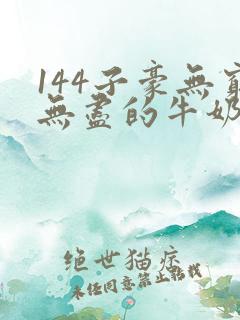 144子豪無窮
無盡的牛奶
绝世猫痞
未经同意禁止转载